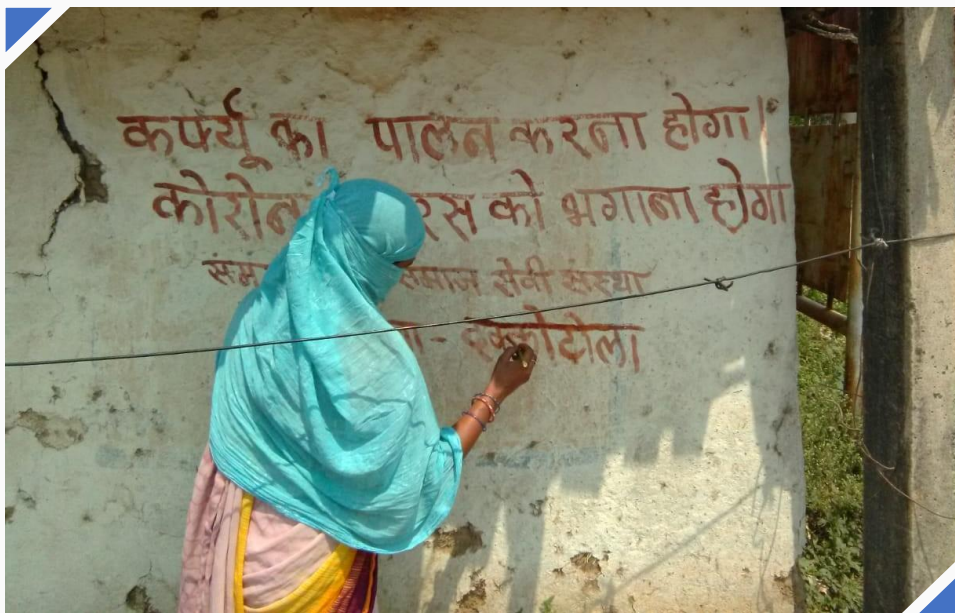 कर्फ्यू का पालन करना होगा।
कोरोना को भगाना होगा
समाज सेवी संस्था